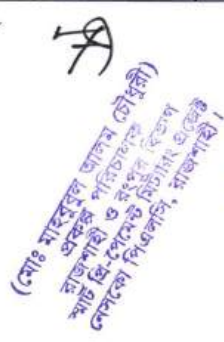 (মোঃ মাহবুবুল আলম চৌধুরী)
প্রকল্প পরিচালক
রাজশাহী ও রংপুর বিভাগ
স্মার্ট প্রি-পেমেন্ট মিটারিং প্রকল্প
নেসকো পিএলসি, রাজশাহী।